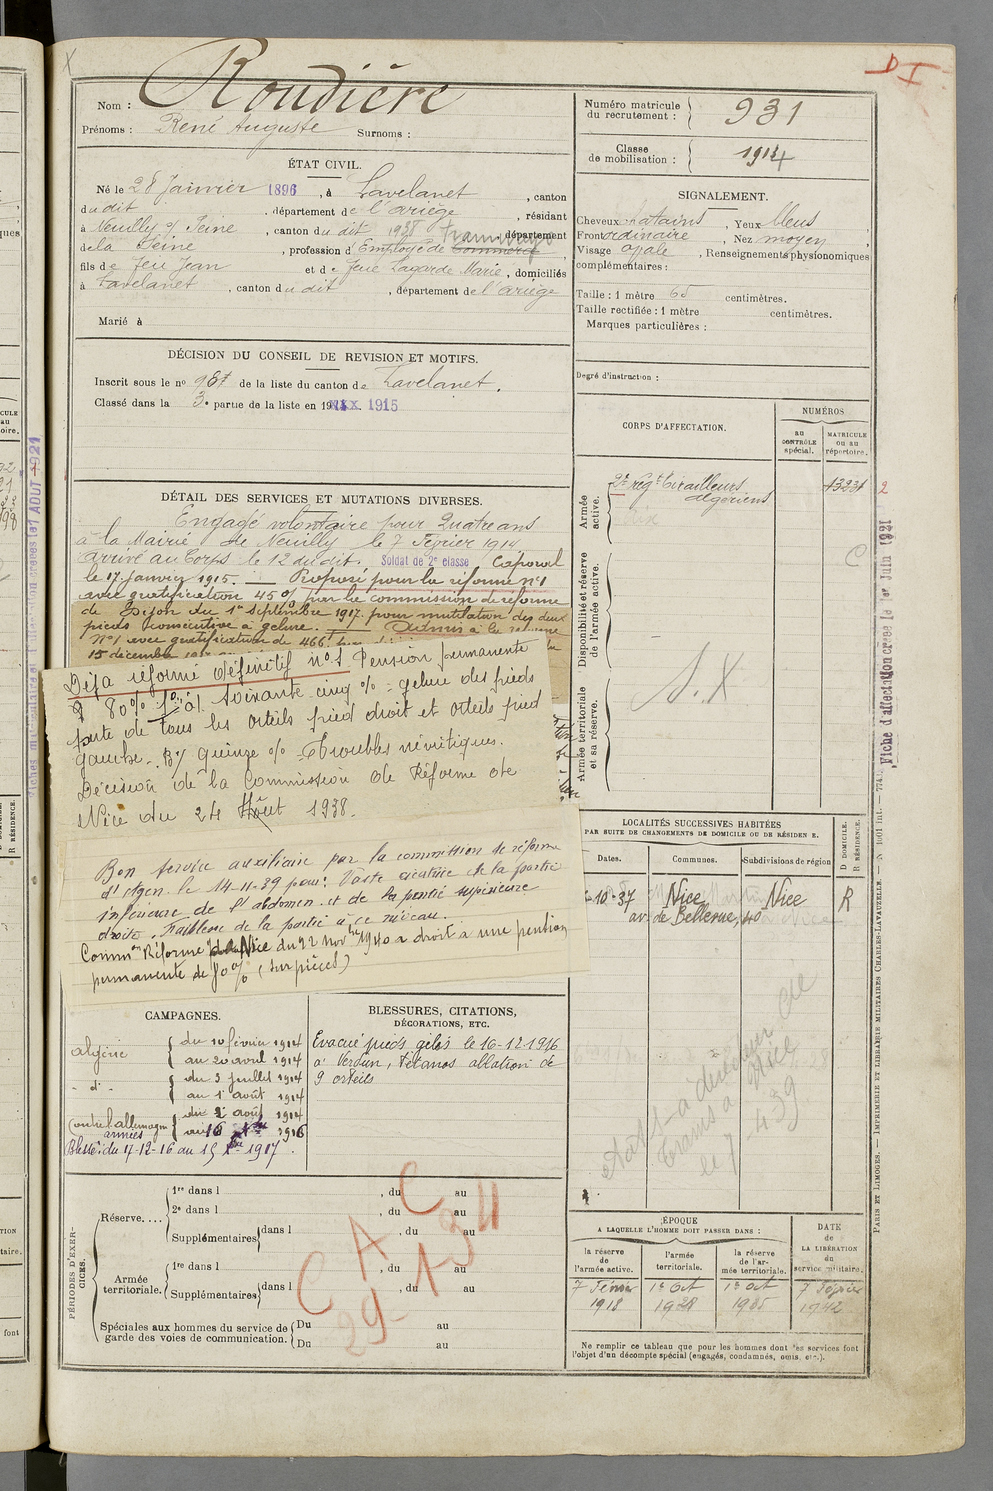 Nom : Roudière
Prénoms : René Auguste Surnoms :
ÉTAT CIVIL.
Né le 28 Janvier 1896, à Lavelanet, canton
du dit, département de l'ariège, résidant
à Neuilly s/ Seine, canton du dit 1938, département
de la Seine, profession d'Employé de Commerce,
fils de feu Jean et de feue Lagarde Marie, domiciliés
à Lavelanet, canton du dit, département de l'ariège
Marié à
DÉCISION DU CONSEIL DE REVISION ET MOTIFS.
Inscrit sous le n° de la liste du canton de Lavelanet.
Classé dans la 3e partie de la liste en 1915
DÉTAIL DES SERVICES ET MUTATIONS DIVERSES.
Engagé volontaire pour Quatre ans
à la Mairie de Neuilly le 7 Février 1914
arrivé au Corps le 12 du dit. Soldat de 2e classe Caporal
le 17 janvier 1915. — Proposé pour la réforme n°1
avec gratification 45 % par la commission de réforme
de Dijon du 1er septembre 1917 pour mutilation des deux
pieds consécutive à gelure. — Admis à la réforme
N°1 avec gratification de 466f
15 décembre
Déjà réformé définitif n°1 Pension permanente
80% 1°: a) soixante cinq % = gelure des pieds
perte de tous les orteils pied droit et orteils pied
gauche. B) quinze % troubles névritiques.
Décision de la Commission de Réforme de
Nice du 24 Août 1938.
Bon service auxiliaire par la commission de réforme
d'Agen le 14-11-39 pour: Vaste cicatrice de la partie
inférieure de l'abdomen et de la partie supérieure
droite. Faiblesse de la partie à ce niveau.
Common Réforme de Nice du 22 Novbre 1940 a droit a une pension
permanente de 80% (sur pièces)
CAMPAGNES.
algérie du 10 février 1914
au 20 avril 1914
- d° - du 3 juillet 1914
au 1er août 1914
Contre l'allemagne du 2 août 1914
armées au 16 1916
Blessé: du 17-12-16 au 15 1917.
BLESSURES, CITATIONS,
DÉCORATIONS, ETC.
Evacué pieds gelés le 16-12-1916
à Verdun, Tétanos ablation de
9 orteils
PÉRIODES D'EXERCICES.
Réserve....
1re dans l , du au
2e dans l , du au
Supplémentaires dans l , du au
Armée territoriale.
1re dans l , du au
Supplémentaires dans l , du au
Spéciales aux hommes du service de garde des voies de communication.
Du au
Du au
C A C
29-1-34
D I
Numéro matricule du recrutement : 931
Classe de mobilisation : 1914
SIGNALEMENT.
Cheveux chatains, Yeux bleus
Front ordinaire, Nez moyen,
Visage ovale, Renseignements physionomiques
complémentaires :
Taille : 1 mètre 65 centimètres.
Taille rectifiée : 1 mètre centimètres.
Marques particulières :
Degré d'instruction :
CORPS D'AFFECTATION.
NUMÉROS
au CONTRÔLE spécial.
MATRICULE ou au répertoire.
Armée active.
2e régt tirailleurs
algériens
Disponibilité et réserve de l'armée active.
Armée territoriale et sa réserve.
S. X
LOCALITÉS SUCCESSIVES HABITÉES
PAR SUITE DE CHANGEMENTS DE DOMICILE OU DE RÉSIDENCE.
Dates. Communes. Subdivisions de région
D DOMICILE.
R RÉSIDENCE.
10-37 Nice Nice R
av. de Bellevue, 40
ÉPOQUE
A LAQUELLE L'HOMME DOIT PASSER DANS :
DATE de LA LIBÉRATION du service militaire.
la réserve de l'armée active.
l'armée territoriale.
la réserve de l'armée territoriale.
7 Février 1918
1er Oct 1928
1er Oct
7 Février 1942
Ne remplir ce tableau que pour les hommes dont les services font
l'objet d'un décompte spécial (engagés, condamnés, omis, etc.).
Fiche d'affectation créée le 1er Juin 1921
PARIS ET LIMOGES. — IMPRIMERIE ET LIBRAIRIE MILITAIRES CHARLES-LAVAUZELLE.